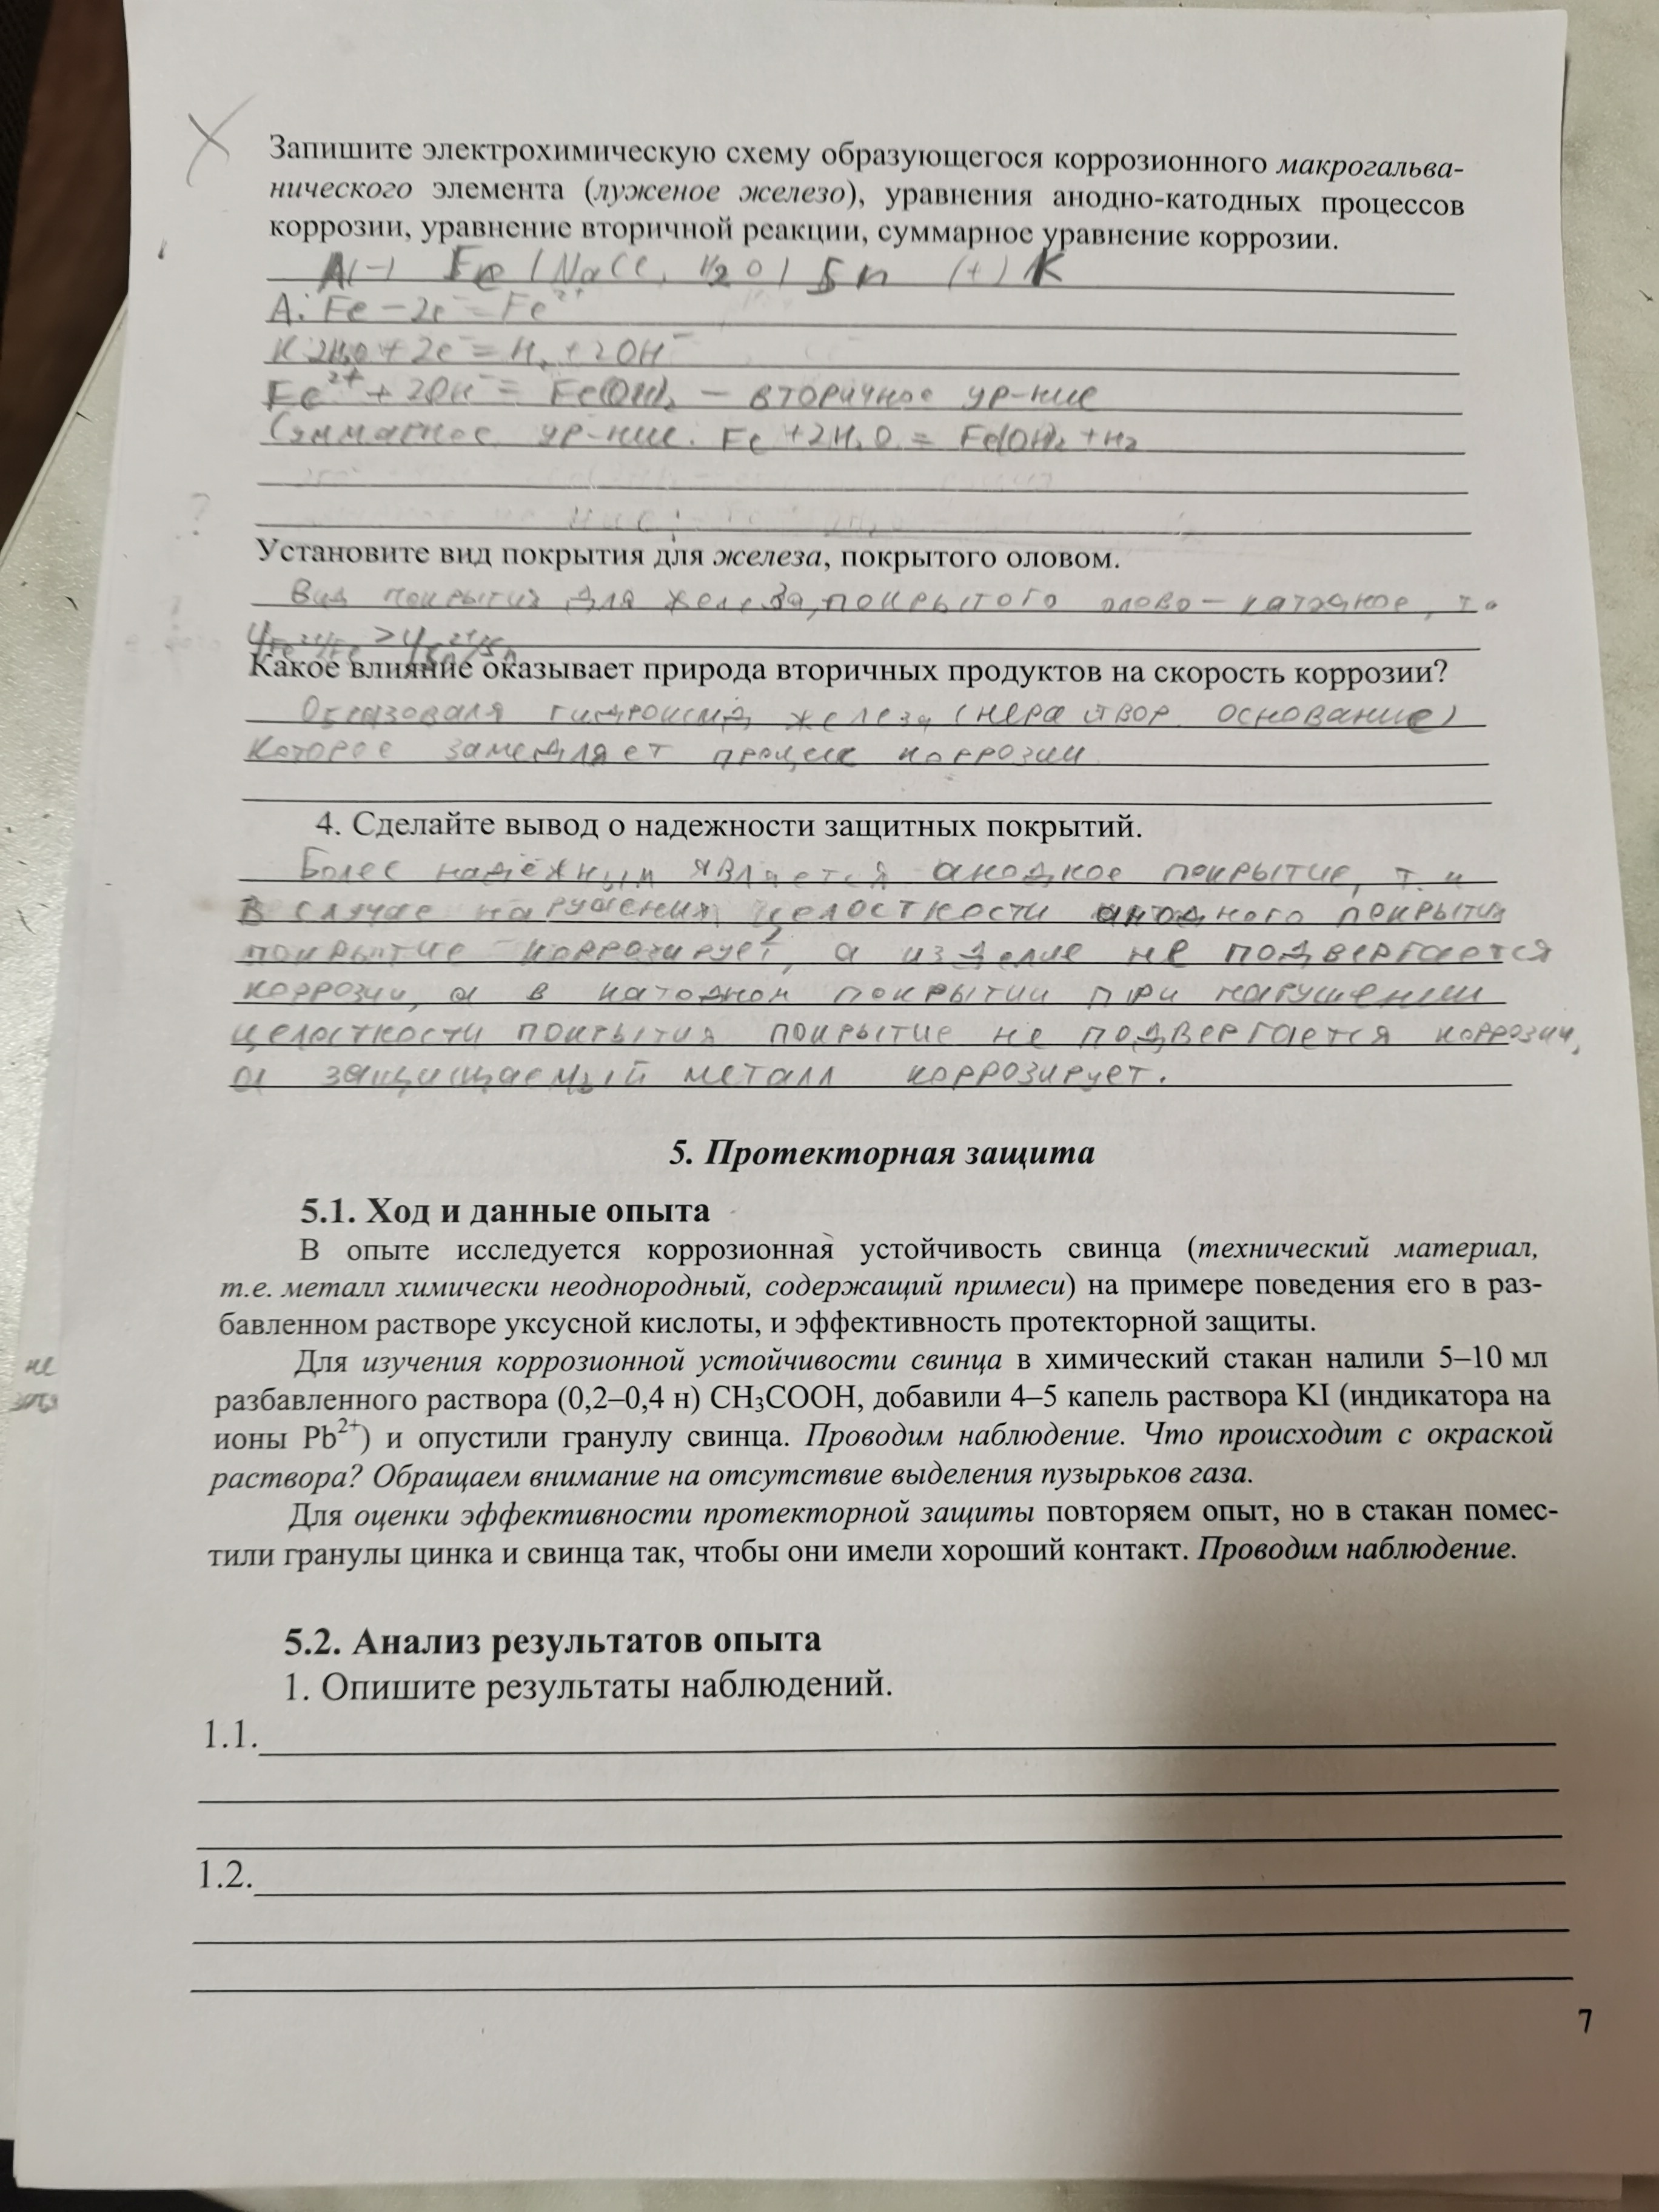 Запишите электрохимическую схему образующегося коррозионного макрогальва-
нического элемента (луженое железо), уравнения анодно-катодных процессов
коррозии, уравнение вторичной реакции, суммарное уравнение коррозии.
A(-) Fe | NaCl, H₂O | Sn (+) K
A: Fe - 2e⁻ = Fe²⁺
K 2H₂O + 2e⁻ = H₂ + 2OH⁻
Fe²⁺ + 2OH⁻ = Fe(OH)₂ — вторичное ур-ние
Суммарное ур-ние. Fe + 2H₂O = Fe(OH)₂ + H₂
?
Установите вид покрытия для железа, покрытого оловом.
Вид покрытия для железа, покрытого олово - катодное, т.
φFe²⁺/Fe > φSn²⁺/Sn
Какое влияние оказывает природа вторичных продуктов на скорость коррозии?
гидроксид железа (нераствор. основание)
которое замедляет процесс коррозии
4. Сделайте вывод о надежности защитных покрытий.
Более надёжным является анодное покрытие, т.к
В случае нарушения целосткости анодного покрытия
покрытие корродирует, а изделие не подвергается
коррозии, а в катодном покрытии при нарушении
целосткости покрытия покрытие не подвергается коррозии,
а защищаемый металл коррозирует.
5. Протекторная защита
5.1. Ход и данные опыта
В опыте исследуется коррозионная устойчивость свинца (технический материал,
т.е. металл химически неоднородный, содержащий примеси) на примере поведения его в раз-
бавленном растворе уксусной кислоты, и эффективность протекторной защиты.
Для изучения коррозионной устойчивости свинца в химический стакан налили 5–10 мл
разбавленного раствора (0,2–0,4 н) CH₃COOH, добавили 4–5 капель раствора KI (индикатора на
ионы Pb²⁺) и опустили гранулу свинца. Проводим наблюдение. Что происходит с окраской
раствора? Обращаем внимание на отсутствие выделения пузырьков газа.
Для оценки эффективности протекторной защиты повторяем опыт, но в стакан помес-
тили гранулы цинка и свинца так, чтобы они имели хороший контакт. Проводим наблюдение.
5.2. Анализ результатов опыта
1. Опишите результаты наблюдений.
1.1.
1.2.
7